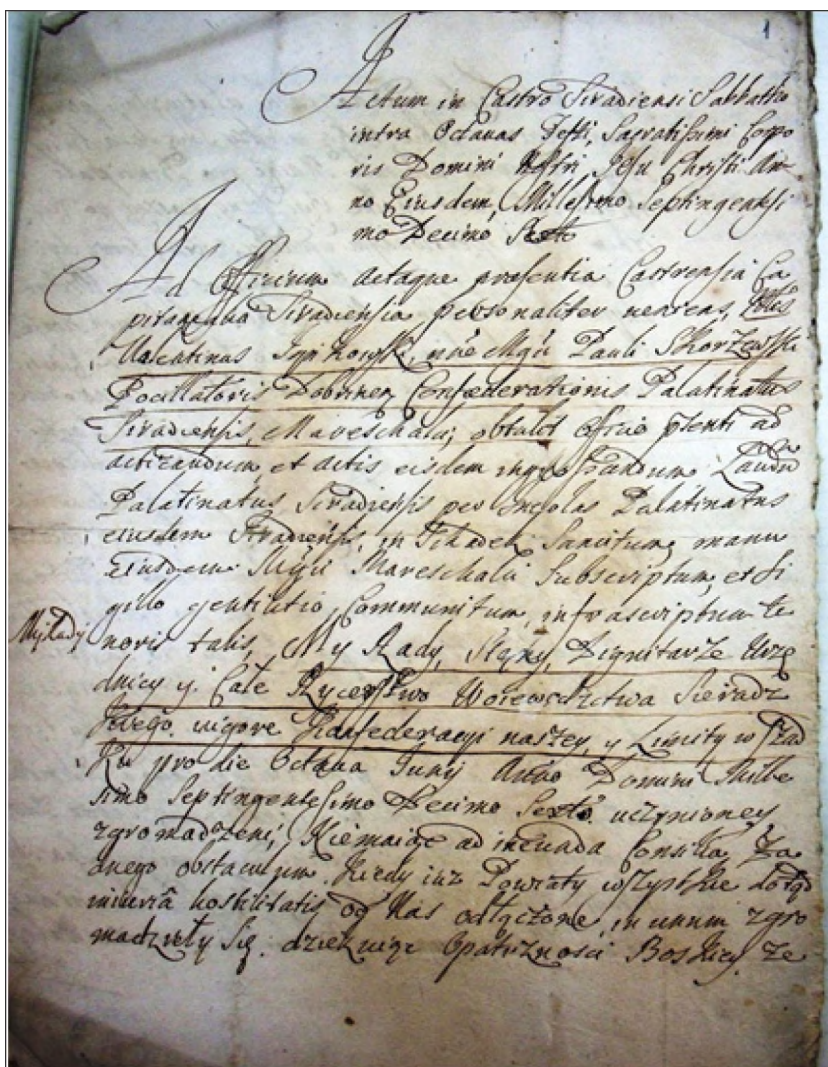 1
Actum in Castro Siradiensi Sabbatho
intra Octavas Festi, Sacratissimi Corpo
ris Domini Nostri Jesu Christi An-
no Eiusdem, Millesimo Septingentesi
mo Decimo Sexto
Ad Officium Actaque praesentia Castrensia Ca
pitanealia Siradiensia personaliter veniens,
Valentinus nõe Mgci Pauli Skorzewski
Pocillatoris Dobrinen Confaederationis Palatinatus
Siradiensis, Mareschalci, obtulit Offcio pñti ad
acticandum, et Actis eisdem ingrossandum Laudũ
Palatinatus Siradiensis per Incolas Palatinatus
eiusdem Siradiensis, in Schadek Sancitum, manu
Eiusdem Mgci Mareschalci Subscriptum, et Si
gillo gentilitio Communitum, infrascripti te
noris talis, My Rady, Dignitarze Urzę
dnicy y Całe Rycerstwo Woiewodztwa Sieradz
kiego, vigore Konfederacyi naszey, y Limity w Szad
ku pro die Octava Junij Anno Domini Mille
simo Septingentesimo Decimo Sexto uczynioney
zgromadzeni, Niemaiąc ad ineunda Consilia, Ża
dnego obstaculum. Kiedy iuz Powiaty wszystkie dotąd
iniuriâ hostilitatis od Nas odłączone, in unum zgro
madzieły Się. dziękuiąc Opatrznosci Boskiey, ze